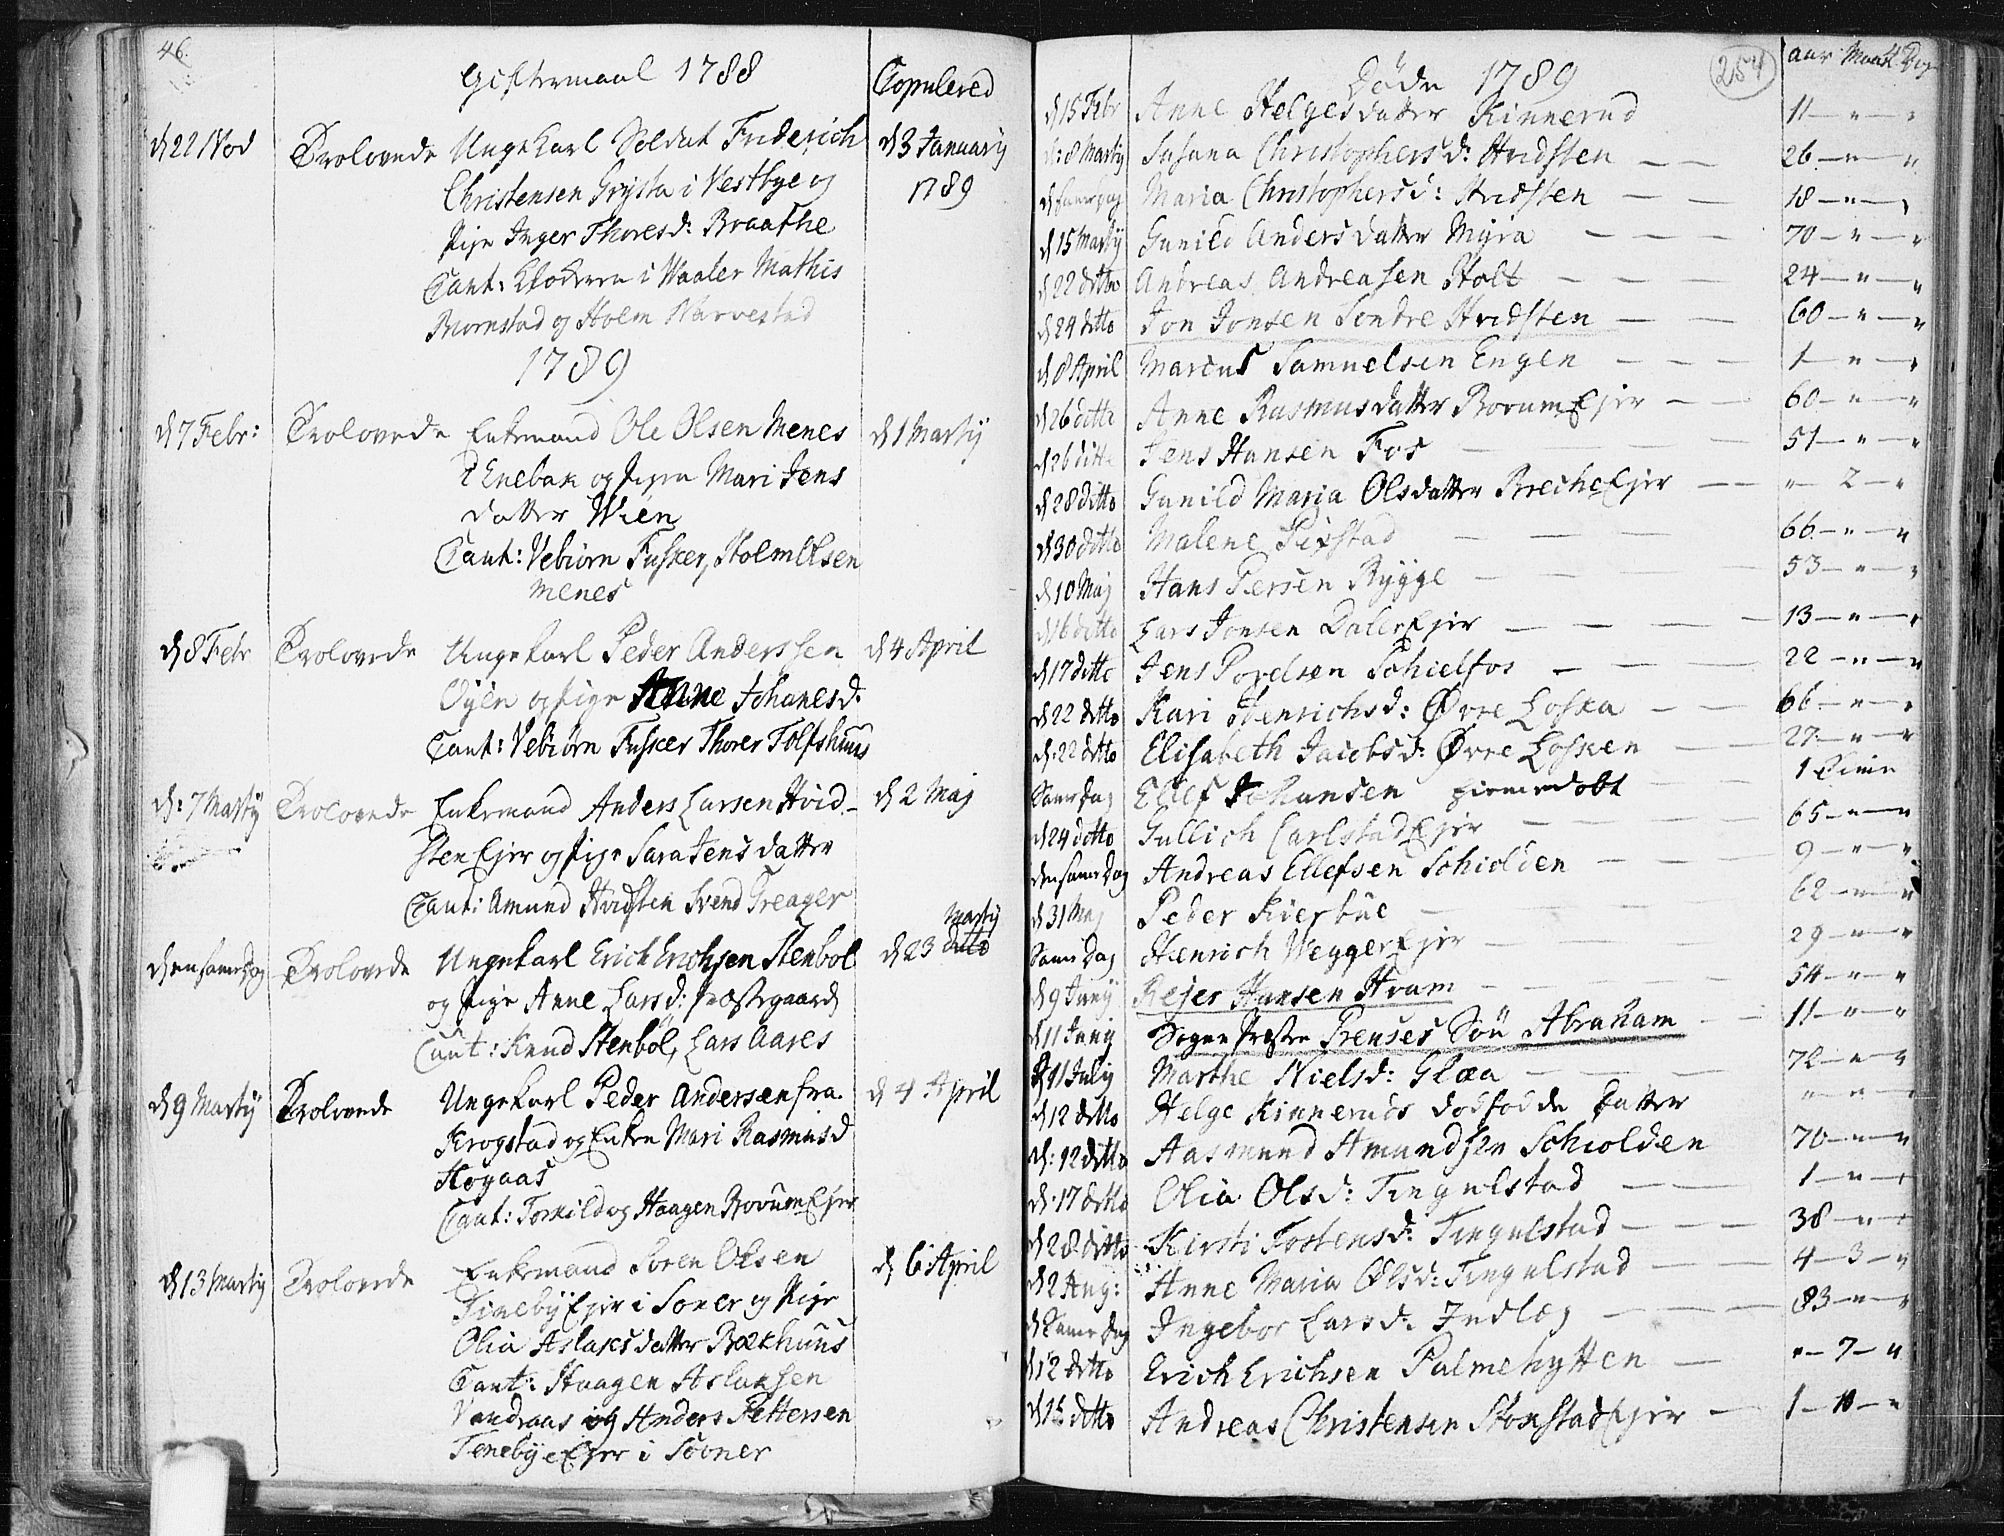 46.
Giftermaal 1788
Copulered
d 22 Nov Trolovede Ungekarl Soldat Friderich d 3 Januarij
Christensen Grysta i Vestbye og 1789
Pige Inger Thoresd: Braathe
Caut: Klokeren i Waaler Mathis
Biørnstad og Holm Narvestad
1789
d 7 Febr: Trolovede Enkemand Ole Olsen Menes d 1 Martij
i Enebak og Pigen Mari Jens
datter Wien
Caut: Vebiørn Fusker, Holm Olsen
Menes
d 8 Febr Trolovede Ungekarl Peder Anderssen d 4 April
Øyen og Pige Anne Johanesd.
Caut: Vebiørn Fusker Thorer Tolfshuus
d: 7 Martij Trolovede Enkemand Anders Larsen Hvid- d 2 Maj
sten Ejer og Pige Sara Jens datter
Caut: Amund Hvidsten Svend Treager
Martij
den same dag Trolovede Ungekarl Erich Erichsen Stenbøl d 23 ditto
og Pige Anne Larsd: Præstegaard
Caut: Knud Stenbøl, Lars Aares
d 9 Martij Trolovede Ungekarl Peder Andersen fra d 4 April
Krogstad og Enke Mari Rasmusd
Høgaas
Caut: Torkild og Haagen Rovum Ejer
d 13 Martij Trolovede Enkemand Søren Olsen d 6 April
Tinebÿ Ejer i Soner og Pige
Olia Aslaks datter Bækhuus
Caut: Haagen Aslaksen
Vandraas og Anders Pettersen
Tenebÿe Ejer i Sooner
Døde 1789 254 aar Maan Dage
d 15 Febr Anne Helges datter Kinnerud 11 — " — "
d: 8 Martij Susana Christophers d: Hvidsten 26 — " — "
d same dag Maria Christophers d: Hvidsten 18 — " — "
d 15 Martij Gunild Anders datter Myra 70 — " — "
d 22 ditto Andreas Andreasen Holt 24 — " — "
d 24 ditto Jon Jonsen Søndre Hvidsten 60 — " — "
d 8 April Marcus Samuelsen Engen 1 — " — "
d 26 ditto Anne Rasmus datter Rovum Ejer 60 — " — "
d 26 ditto Jens Hansen Fos 51 — " — "
d 28 ditto Gunild Maria Olsdatter Breche Ejer " — 2 — "
d 30 ditto Malene Sixstad 66 — " — "
d 10 Maj Hans Persen Bygge 53 — " — "
d 16 ditto Lars Jonsen Daler Ejer 13 — " — "
d 17 ditto Jens Povelsen Schielfos 22 — " — "
d 22 ditto Kari Henrichs d: Øvre Loska 66 — " — "
d. 22 ditto Elisabeth Jacobsd: Øvre Losken 27 — " — "
Same dag Ellef Johansen hiemedøbt 1 Time
d 24 ditto Gullich Carlstad Ejer 65 — " — "
den same dag Andreas Ellefsen Schiolden 9 — " — "
d 31 Maj Peder Kierbüe 62 — " — "
Same dag Henrich Wegger Ejer 29 — " — "
d 9 Junij Rejer Hansen Hvam 54 — " — "
d 11 Junij Sogne Præsten Prenses Søn Abraham 11 — " — "
d 11 Julij Marthe Niels d: Glæa 72 — " — "
d 12 ditto Helge Kinneruds dødfødde datter " — " — "
d: 12 ditto Aasmund Amundsen Schiolden 70 — " — "
d. 17 ditto Olia Olsd: Tingulstad 1 — " — "
d 28 ditto Kirsti Tostensd: Tingulstad 38 — " — "
d 2 Aug: Anne Maria Olsd: Tingulstad 4 — 3 — "
d Same dag Ingebor Larsd: Indlæg 83 — " — "
d 12 ditto Erich Erichsen Palmehytten " — 7 — "
ditto Andreas Christensen Stokstad Ejer 1 — 10 — "